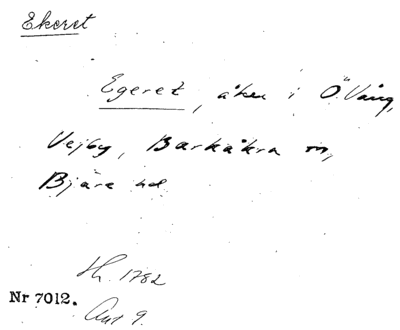 Ekeret
Egeret, åker i Ö. Vång,
Vejby, Barkåkra sn,
Bjäre hd
Hl. 1782
Nr 7012. Akt 9.